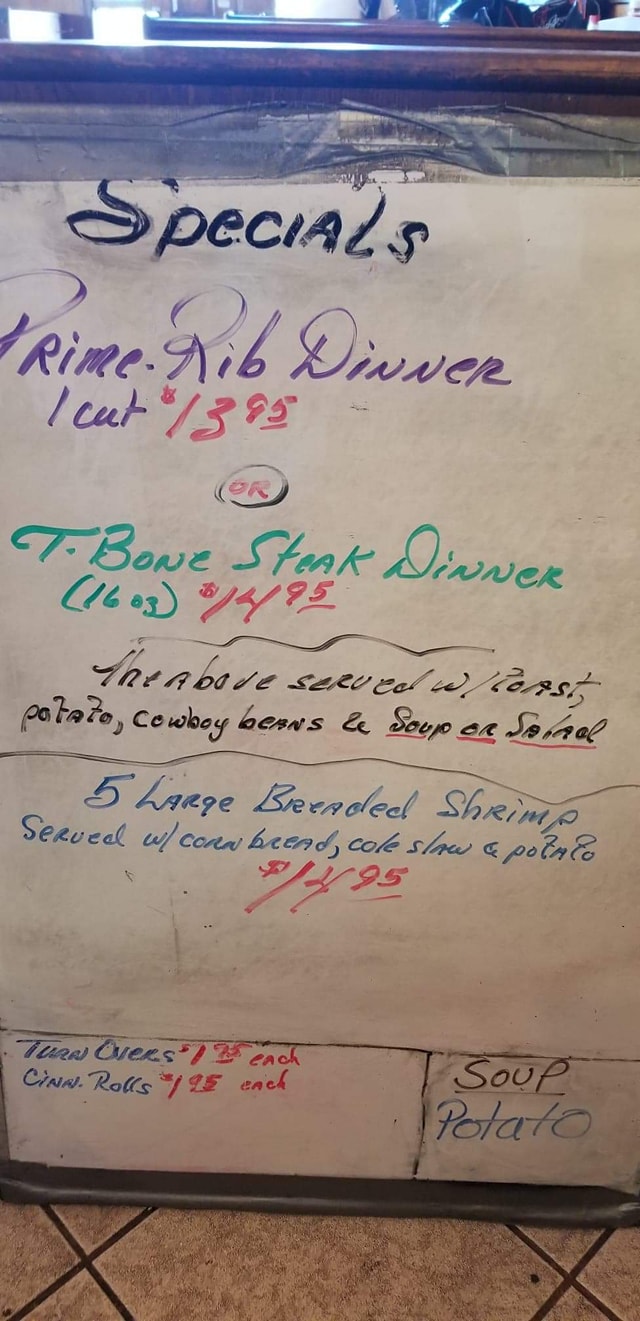 Specials
Prime-Rib Dinner
1 cut $13 95
OR
T-Bone Steak Dinner
(16 oz) $14 95
The above served w/ toast,
potato, cowboy beans & Soup or Salad
5 Large Breaded Shrimp
Served w/ corn bread, cole slaw & potato
$14 95
Turn Overs $1 95 each
Cinn. Rolls $1 95 each
Soup
Potato